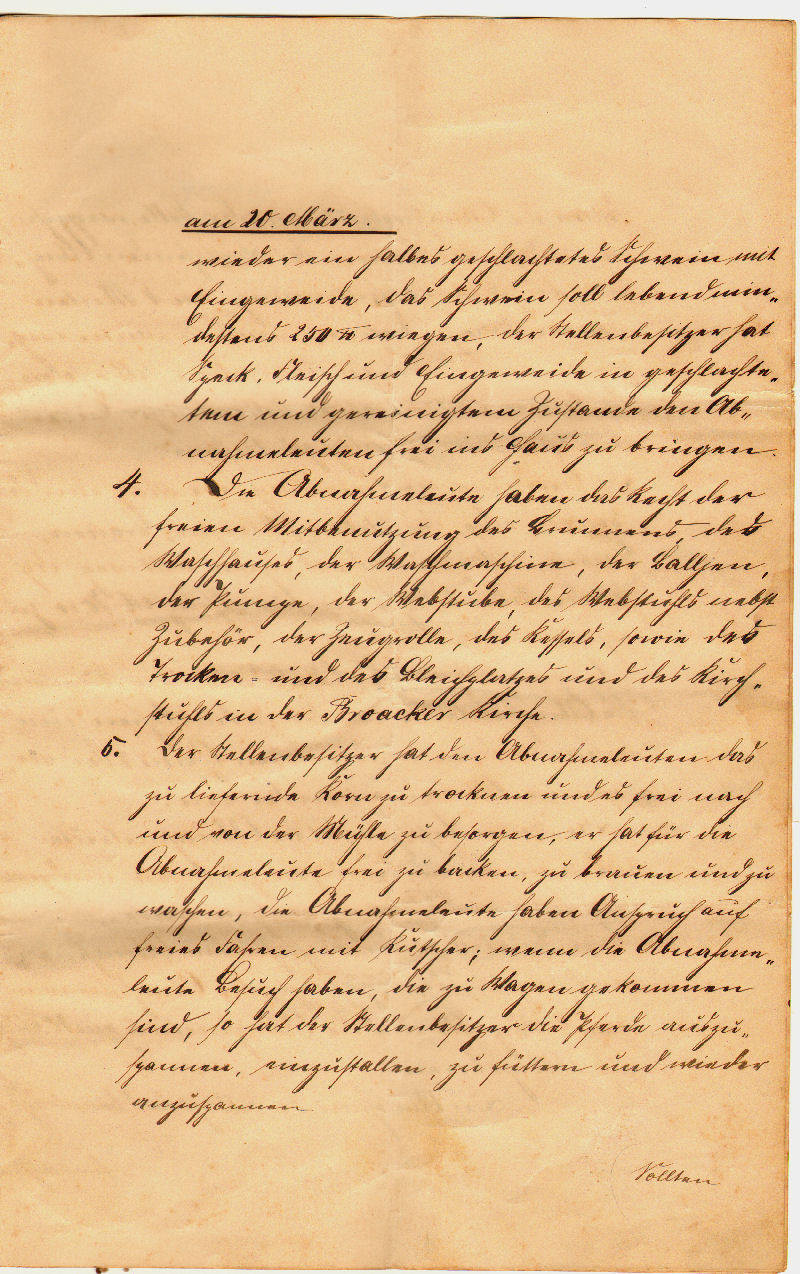 am 20. März.
wieder ein halbes geschlachtetes Schwein mit
Eingeweide, das Schwein soll lebend min„
destens 250 ℔ wiegen, der Stellenbesitzer hat
Speck, Fleisch und Eingeweide in geschlachte„
tem und gereinigtem Zustande den Ab„
nahmeleuten frei ins Haus zu bringen.
4. Die Abnahmeleute haben das Recht der
freien Mitbenutzung des Brunnens, des
Waschhauses, der Waschmaschine, der Balljen,
der Pumpe, der Webstube, des Webstuhls nebst
Zubehör, der Zeugrolle, des Kessels, sowie des
Trocken- und des Bleichplatzes und des Kirch„
stuhls in der Broacker Kirche.
5. Der Stellenbesitzer hat den Abnahmeleuten das
zu liefernde Korn zu trocknen und es frei nach
und von der Mühle zu besorgen, er hat für die
Abnahmeleute frei zu backen, zu brauen und zu
waschen, die Abnahmeleute haben Anspruch auf
freies Fahren mit Kutscher; wenn die Abnahme„
leute Besuch haben, die zu Wagen gekommen
sind, so hat der Stellenbesitzer die Pferde auszu„
spannen, einzustallen, zu füttern und wieder
anzuspannen
Sollten